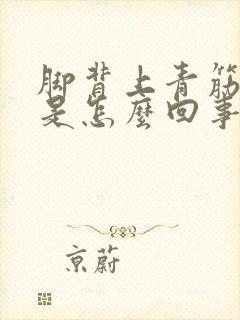 脚背上青筋
是怎麼回事
京蔚